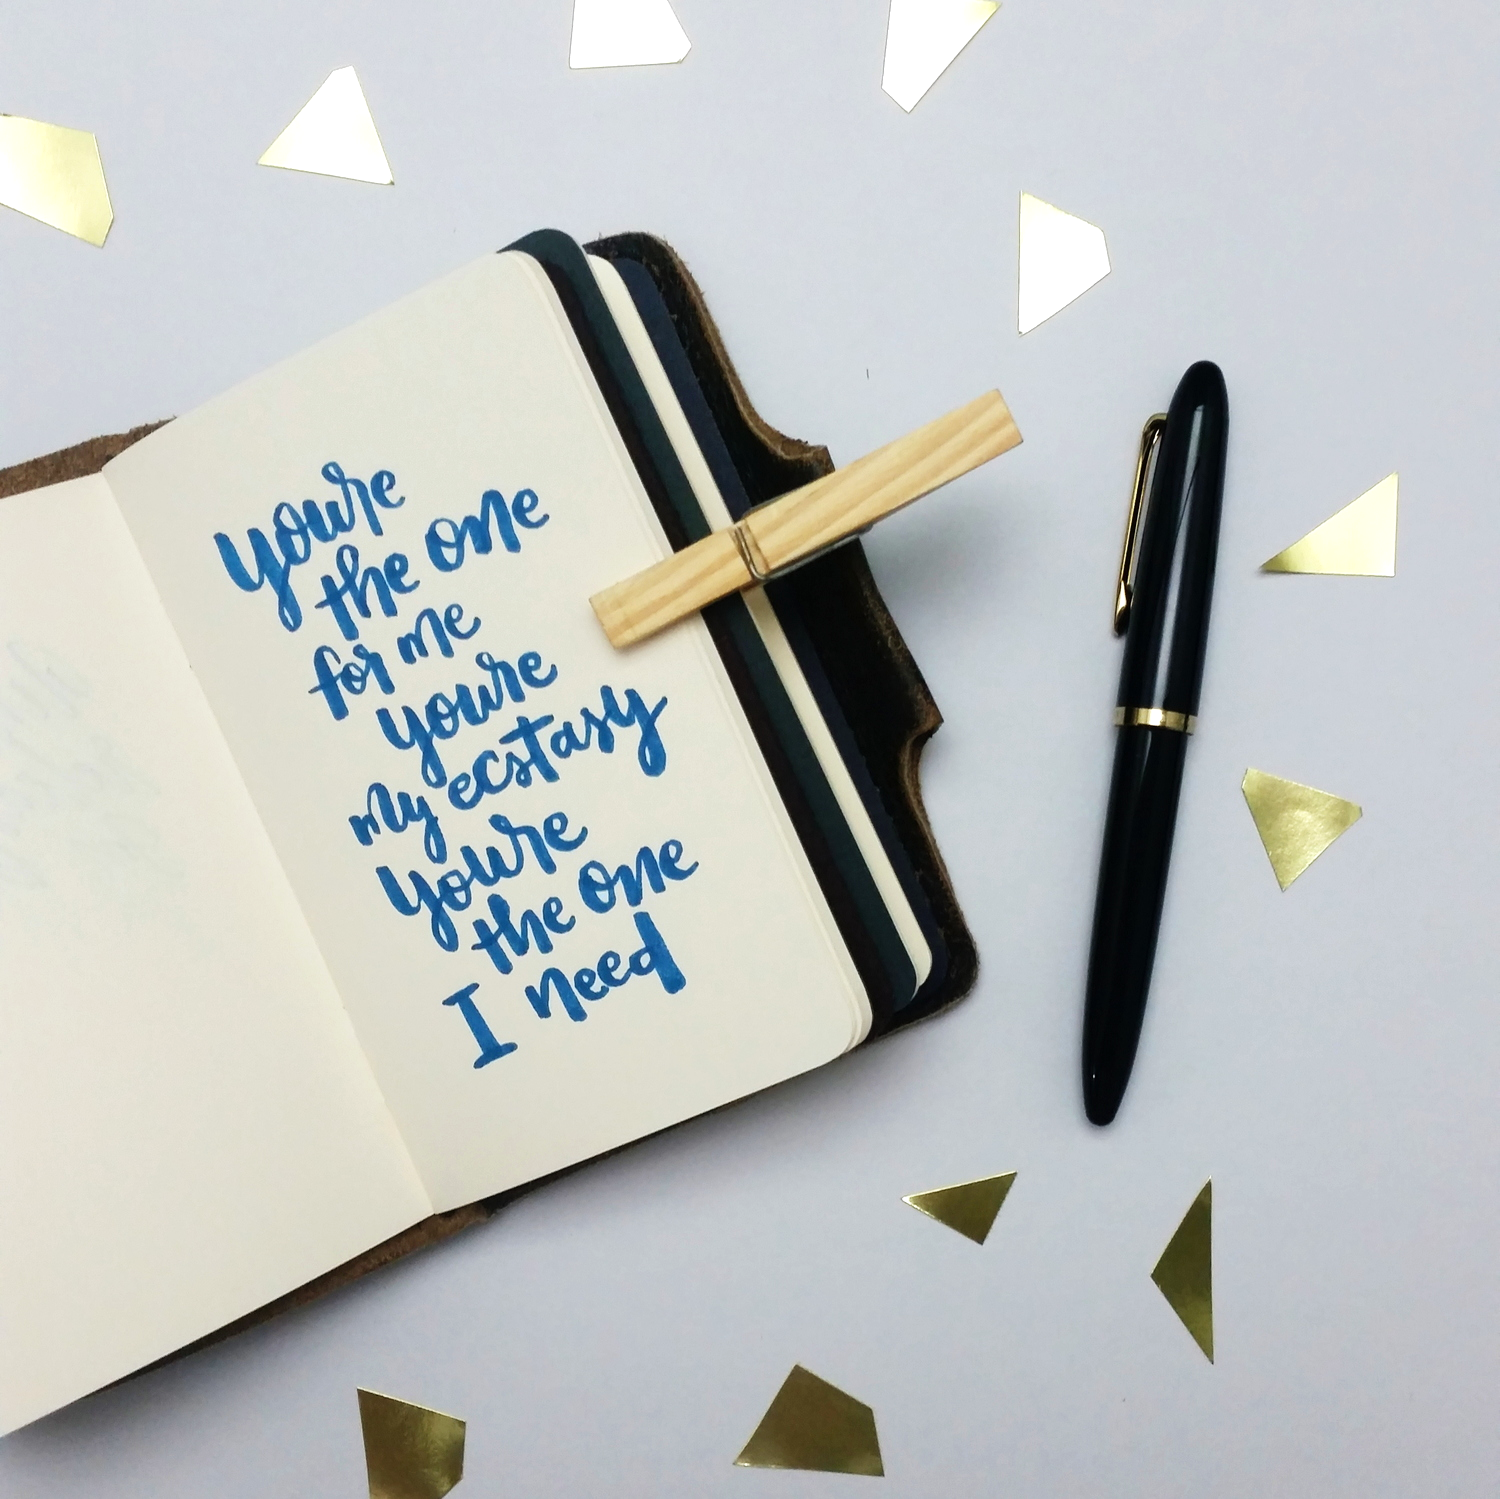 you're
the one
for me
you're
my ecstasy
you're
the one
I need